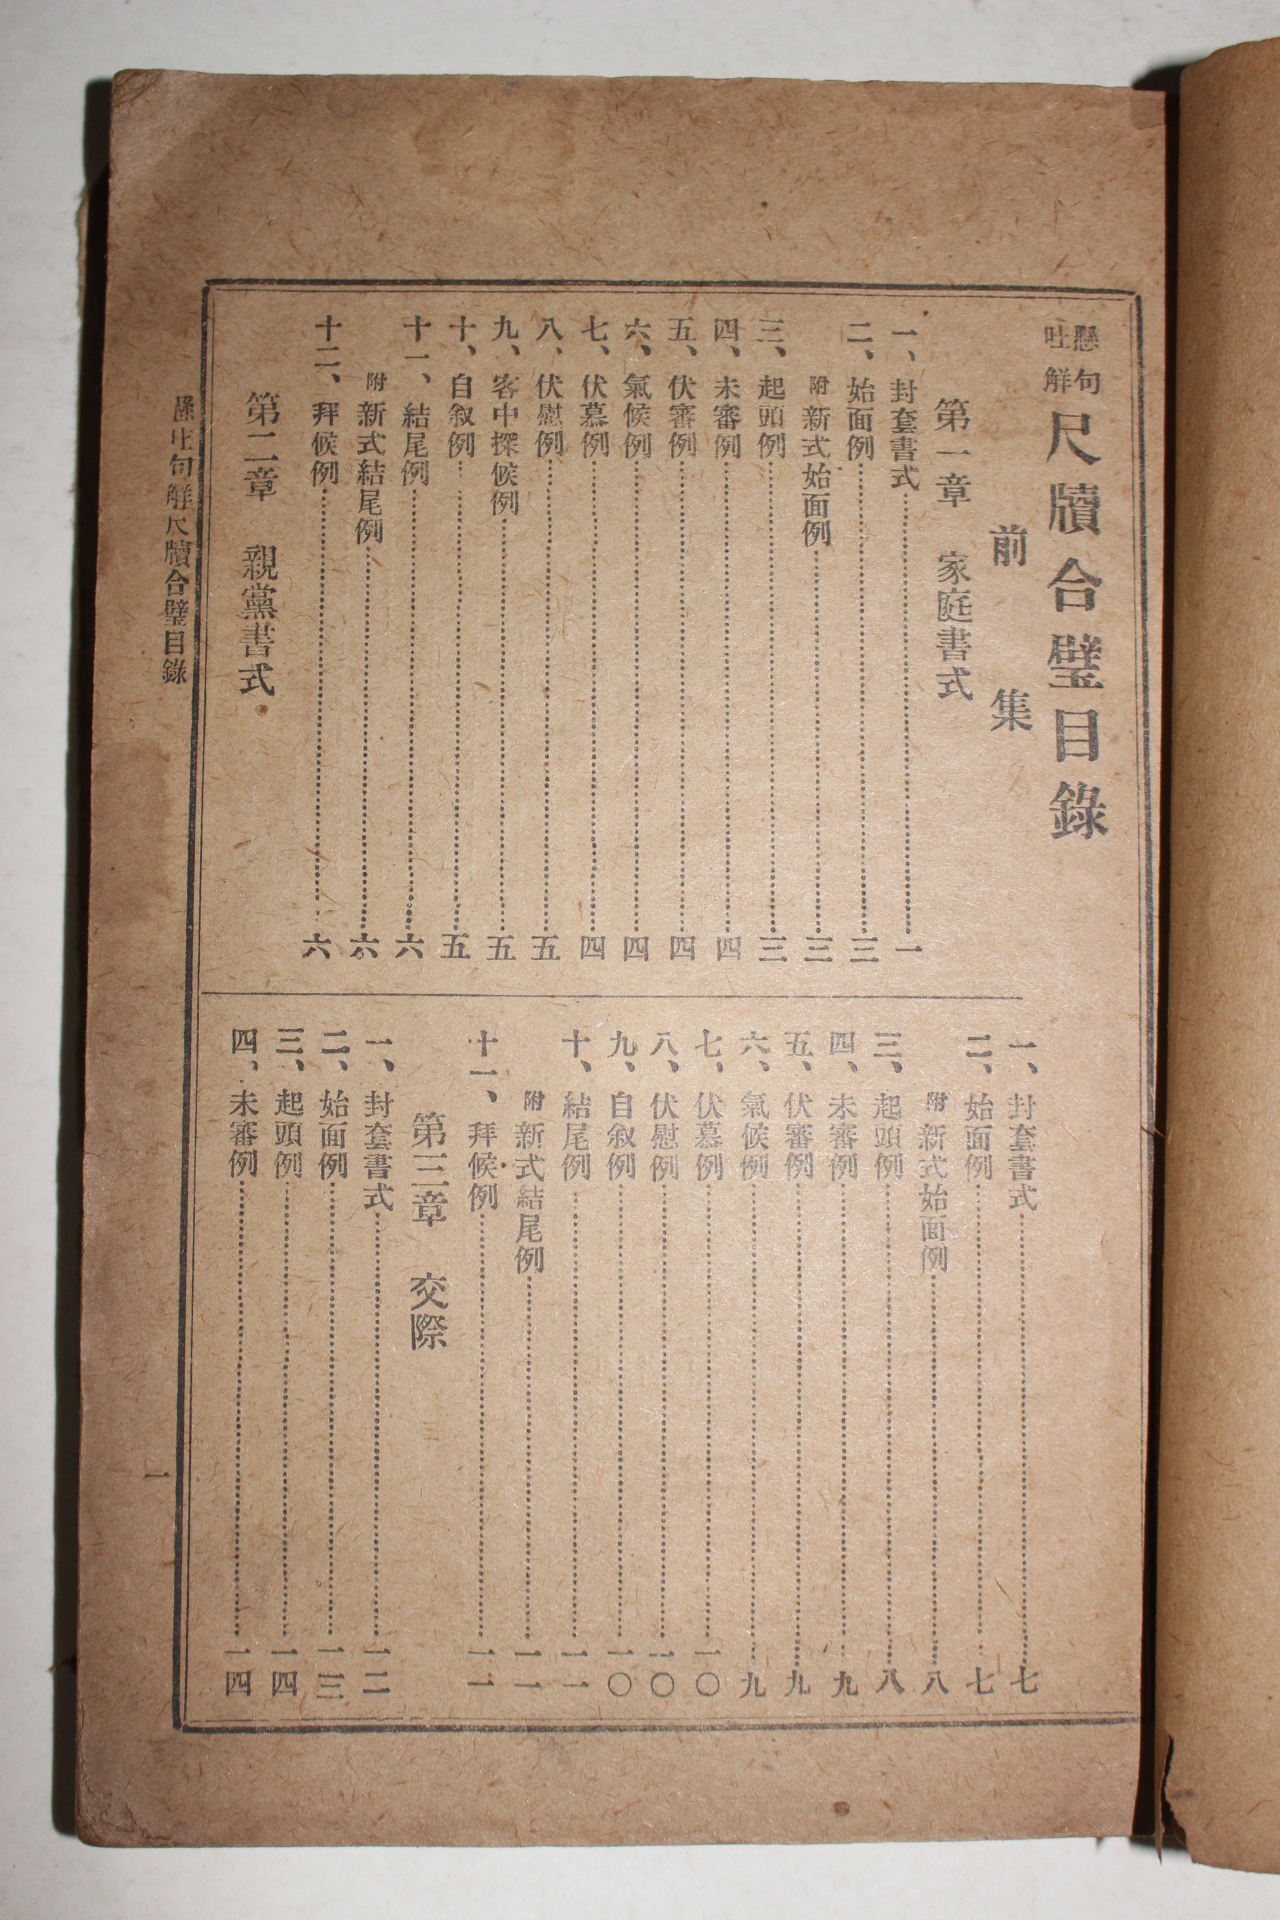 懸吐
句解 尺牘合璧目錄
前集
第一章 家庭書式
一、封套書式 一
二、始面例 三
附 新式始面例 三
三、起頭例 三
四、未審例 四
五、伏審例 四
六、氣候例 四
七、伏慕例 四
八、伏慰例 五
九、客中探候例 五
十、自叙例 五
十一、結尾例 六
附 新式結尾例 六
十二、拜候例 六
第二章 親黨書式
一、封套書式 七
二、始面例 七
附 新式始面例 八
三、起頭例 八
四、未審例 九
五、伏審例 九
六、氣候例 九
七、伏慕例 一〇
八、伏慰例 一〇
九、自叙例 一〇
十、結尾例 一一
附 新式結尾例 一一
十一、拜候例 一一
第三章 交際
一、封套書式 一二
二、始面例 一三
三、起頭例 一四
四、未審例 一四
懸吐句解尺牘合璧目錄
一